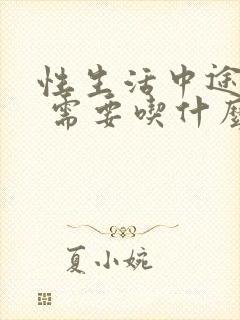 性生活中途
需要喫什
夏小婉